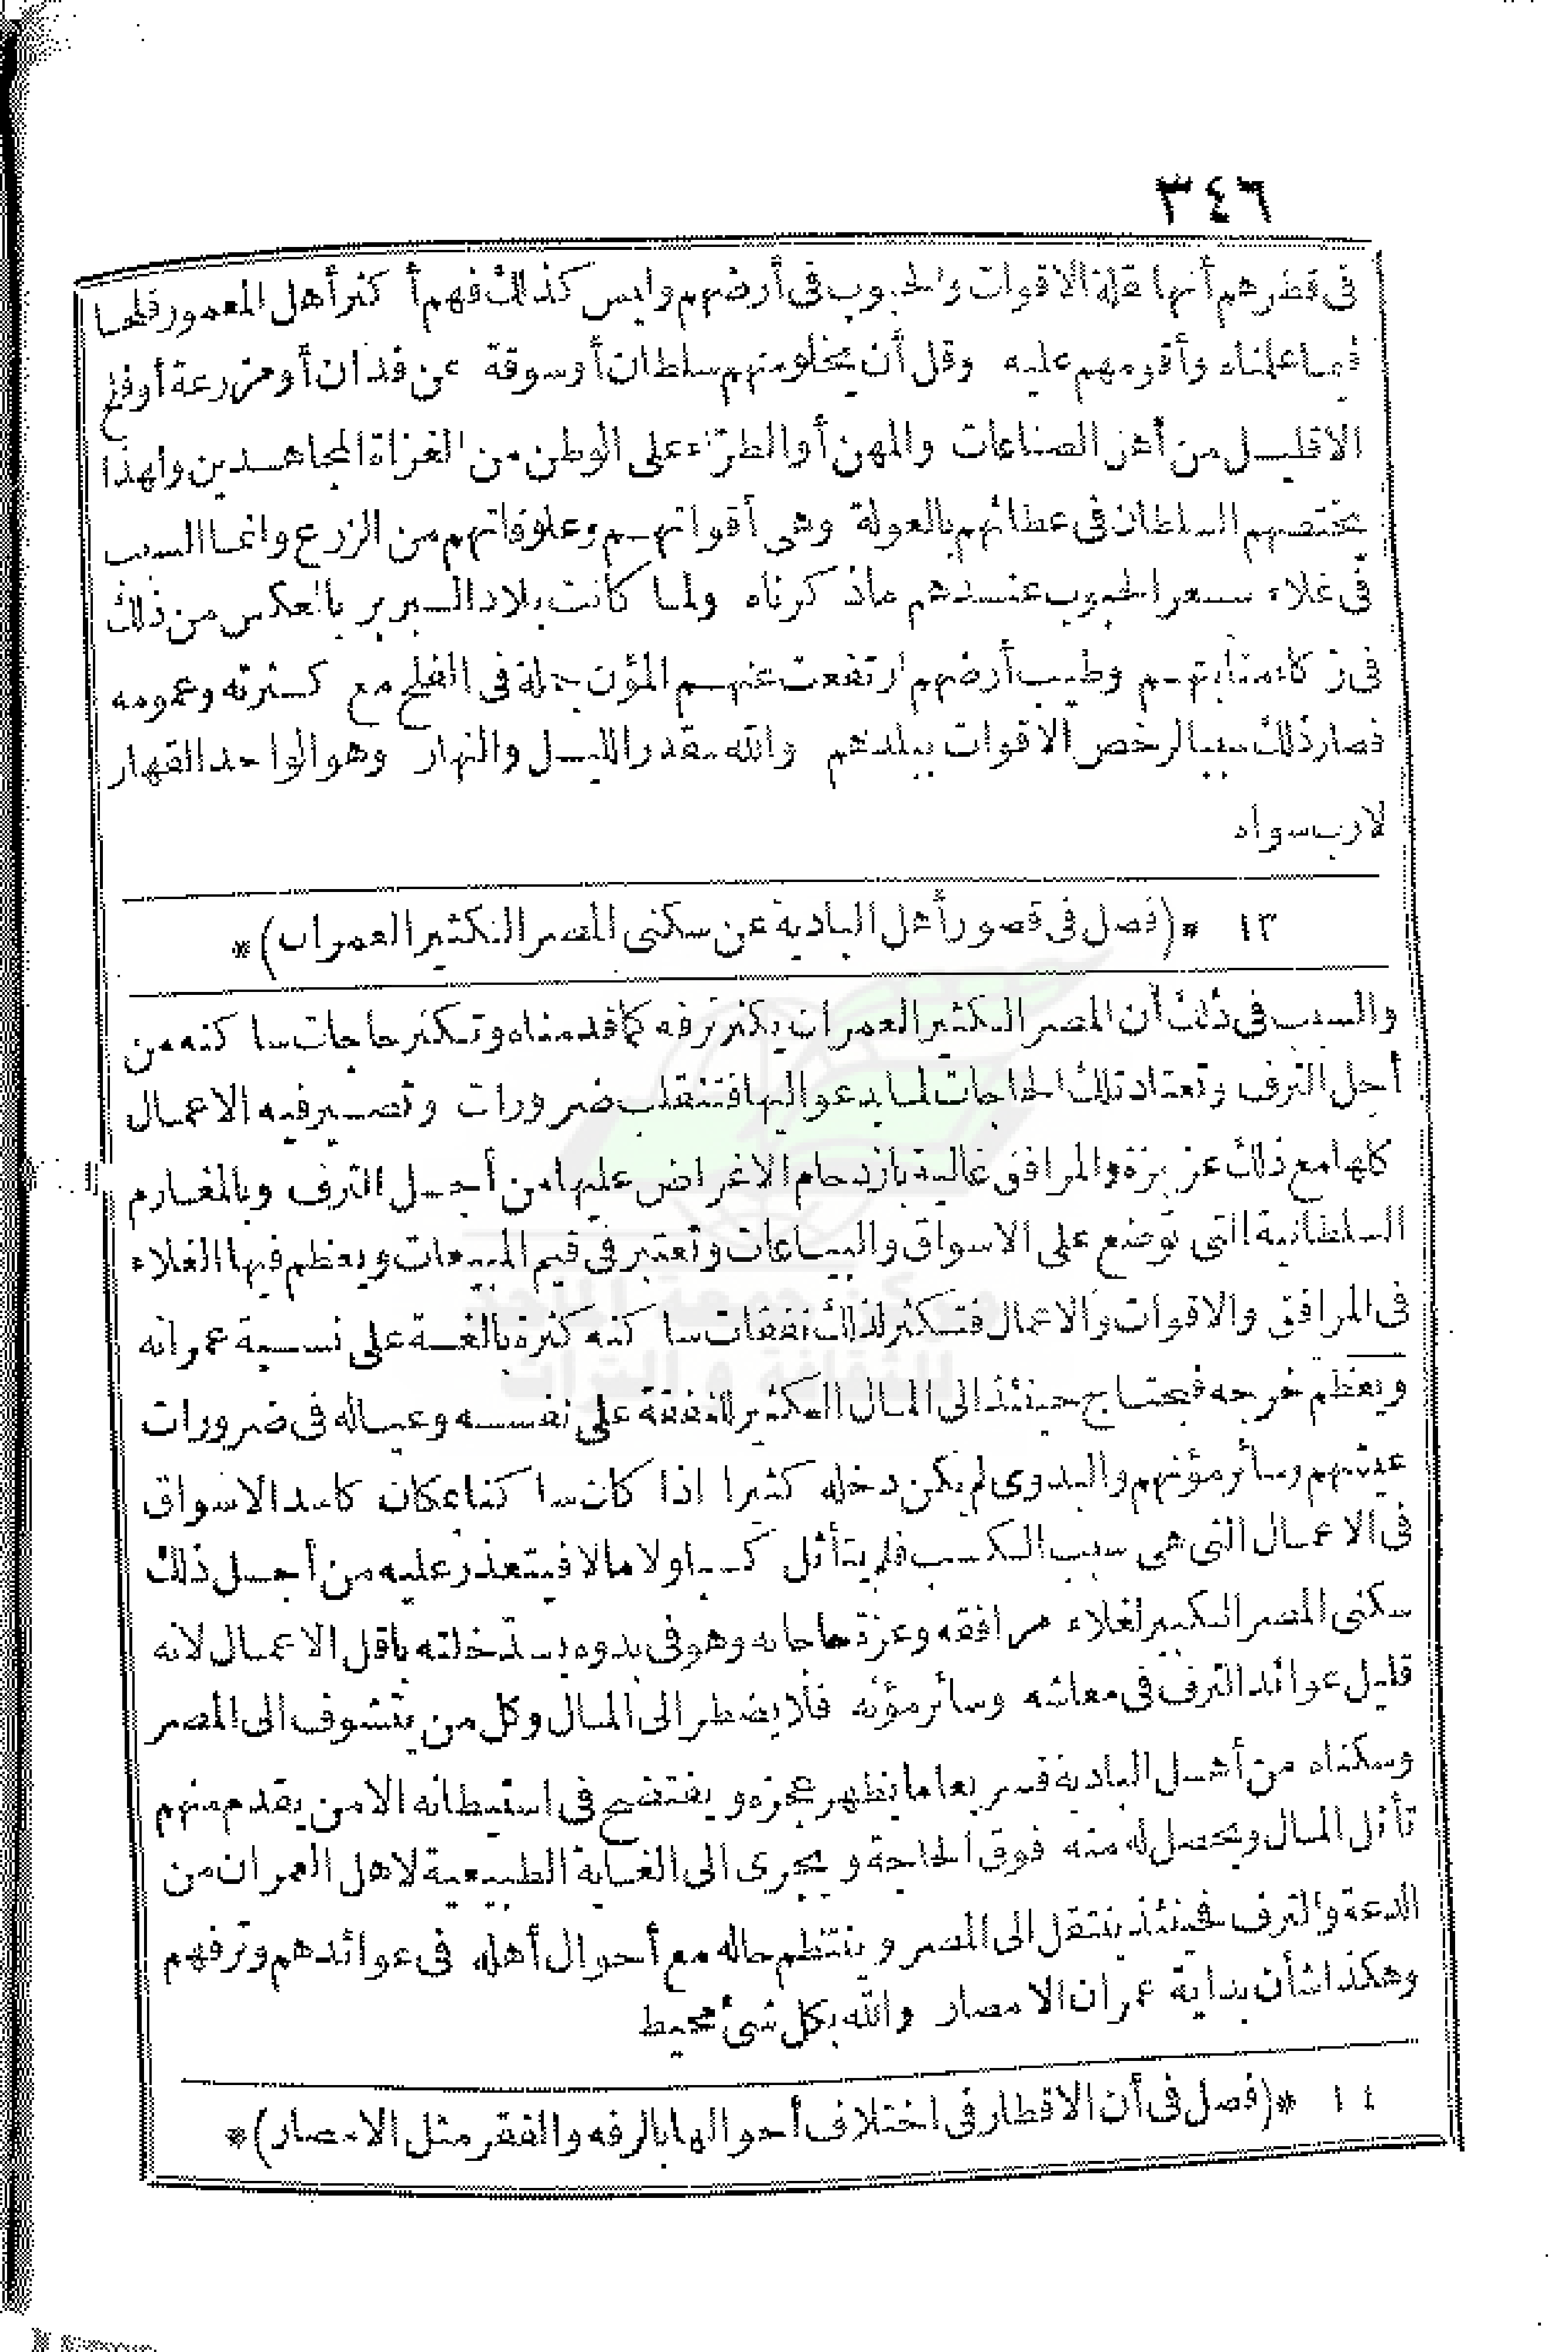 ٣٤٦
فى قطرهم أنها قلة الاقوات والحبوب فى أرضهم وليس كذلك فهم أكثر أهل المعمور فلحا
فيما علمناه وأقومهم عليه وقل أن يخلو منهم سلطان أو سوقة عن فدان أو مزرعة أو فلح
الا قليل من أهل الصناعات والمهن أو الطرّاء على الوطن من الغزاة المجاهدين ولهذا
يختصهم السلطان فى عطائهم بالعولة وهى أقواتهم وعلوفاتهم من الزرع وانما السبب
فى غلاء سعر الحبوب عندهم ماذكرناه ولما كانت بلاد البربر بالعكس من ذلك
فى زكاء منابتهم وطيب أرضهم ارتفعت عنهم المؤن جملة فى الفلح مع كثرته وعمومه
فصار ذلك سببا لرخص الاقوات ببلدهم والله مقدر الليل والنهار وهو الواحد القهار
لارب سواه
١٣ *(فصل فى قصور أهل البادية عن سكنى المصر الكثير العمران)*
والسبب فى ذلك أن المصر الكثير العمران يكثر ترفه كما قدمناه وتكثر حاجات ساكنه من
أجل الترف وتعتاد تلك الحاجات لما يدعو اليها فتنقلب ضرورات وتصير فيه الاعمال
كلها مع ذلك عزيزة والمرافق غالية بازدحام الاغراض عليها من أجل الترف وبالمغارم
السلطانية التى توضع على الاسواق والبياعات وتعتبر فى قيم المبيعات ويعظم فيها الغلاء
فى المرافق والاقوات والاعمال فتكثر لذلك نفقات ساكنه كثرة بالغة على نسبة عمرانه
ويعظم خرجه فيحتاج حينئذ الى المال الكثير للنفقة على نفسه وعياله فى ضرورات
عيشهم وسائر مؤنهم والبدوى لم يكن دخله كثيرا اذا كان ساكنا بمكان كاسد الاسواق
فى الاعمال التى هى سبب الكسب فلم يتأثل كسبا ولا مالا فيتعذر عليه من أجل ذلك
سكنى المصر الكبير لغلاء مرافقه وعزة حاجاته وهو فى بدوه يسد خلته باقل الاعمال لانه
قليل عوائد الترف فى معاشه وسائر مؤنه فلا يضطر الى المال وكل من يتشوف الى المصر
وسكناه من أهل البادية فسريعا ما يظهر عجزه ويفتضح فى استيطانه الا من يقدم منهم
تأثل المال ويحصل له منه فوق الحاجة ويجرى الى الغاية الطبيعية لاهل العمران من
الدعة والترف فحينئذ ينتقل الى المصر وينتظم حاله مع أحوال أهله فى عوائدهم وترفهم
وهكذا شأن بداية عمران الامصار والله بكل شئ محيط
١٤ *(فصل فى أن الاقطار فى اختلاف أحوالها بالرفه والفقر مثل الامصار)*
مركز جمعة الماجد
للثقافة و التراث